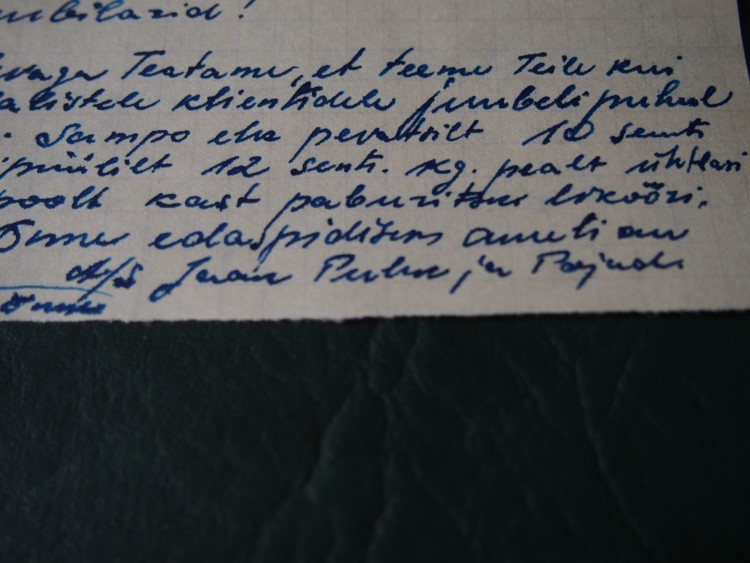 ubilarid!
Teatame, et teeme Teile kui
alistele klientidele juubeli puhul
Sampo ehk pevatsilt 10 senti
püülilt 12 senti. kg. pealt ühtlasi
poolt kast paburitski likööri.
Õnne edaspidiseks
A/S Jaan Puhk ja Pojad.